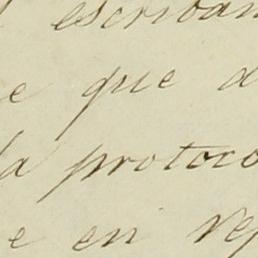 escriban
e que d
la protoco
e en rep